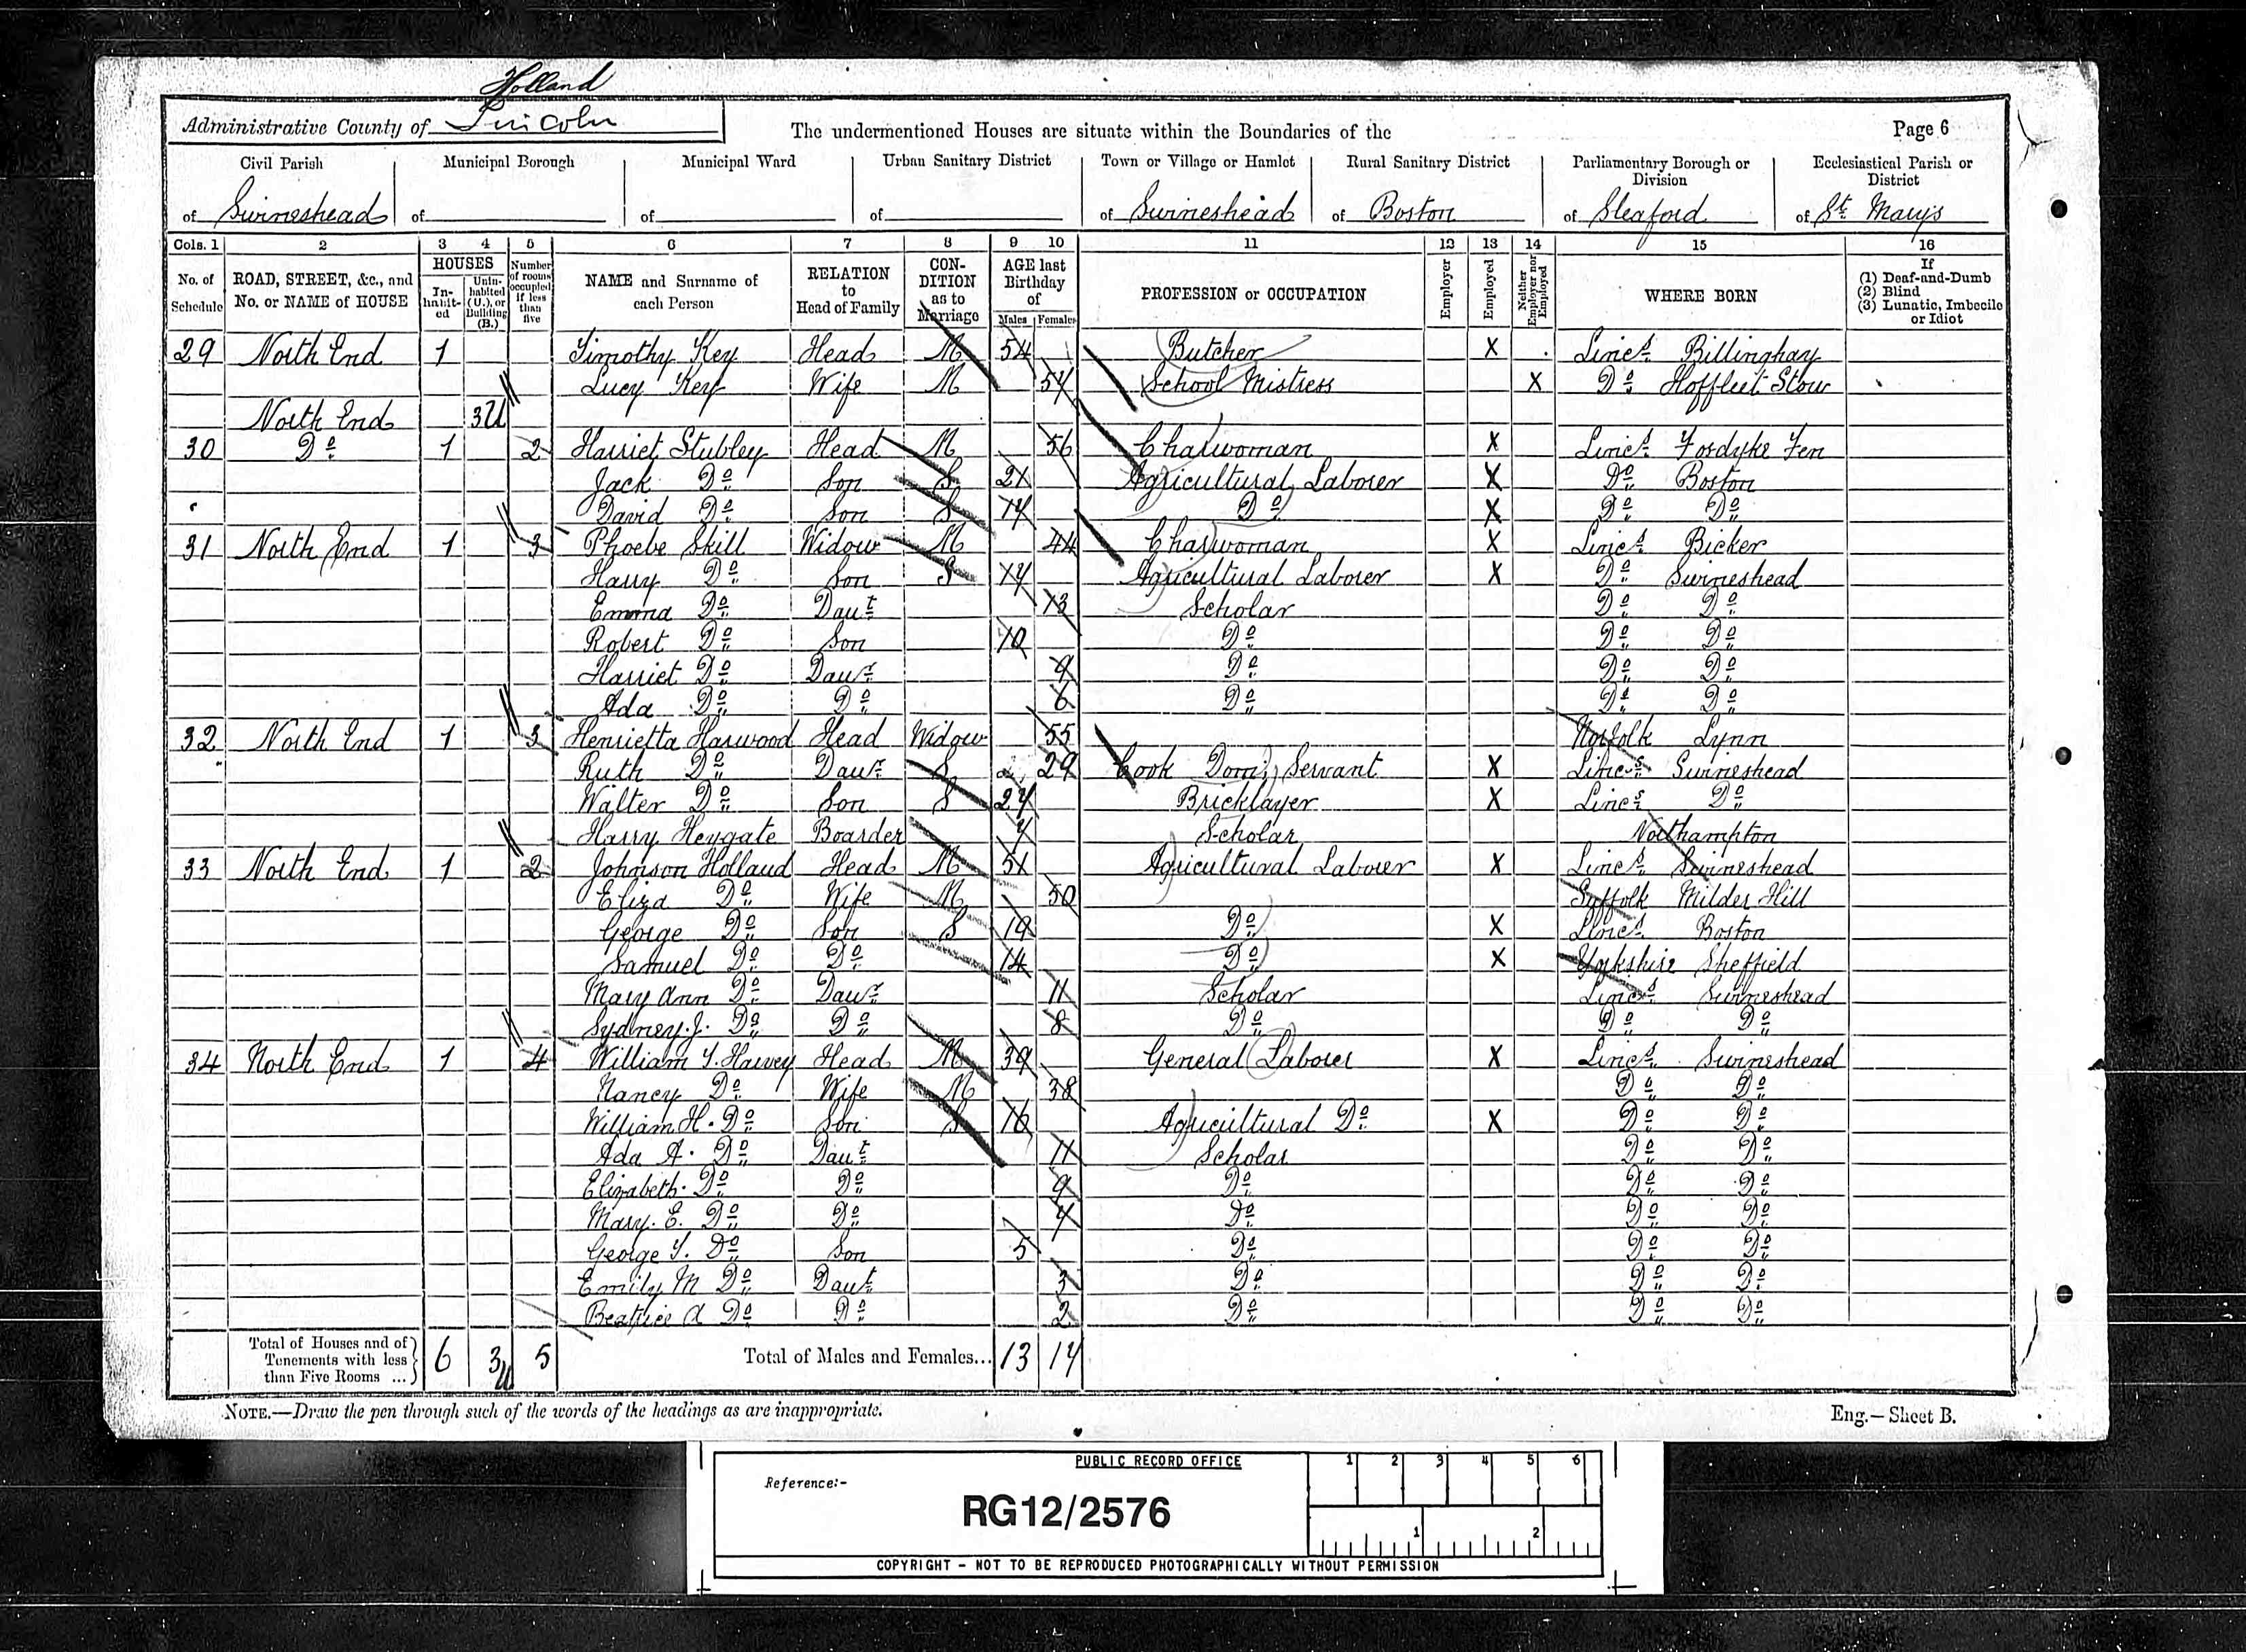 Holland
Administrative County of Lincoln
The undermentioned Houses are situate within the Boundaries of the
Page 6
Civil Parish of Swineshead
Municipal Borough of
Municipal Ward of
Urban Sanitary District of
Town or Village or Hamlet of Swineshead
Rural Sanitary District of Boston
Parliamentary Borough or Division of Sleaford
Ecclesiastical Parish or District of St. Mary's
Cols. 1 2 3 4 5 6 7 8 9 10 11 12 13 14 15 16
No. of Schedule
ROAD, STREET, &c., and No. or NAME of HOUSE
HOUSES
In-habit-ed
Unin-habited (U.), or Building (B.)
Number of rooms occupied if less than five
NAME and Surname of each Person
RELATION to Head of Family
CON-DITION as to Marriage
AGE last Birthday of
Males Females
PROFESSION or OCCUPATION
Employer
Employed
Neither Employer nor Employed
WHERE BORN
If (1) Deaf-and-Dumb (2) Blind (3) Lunatic, Imbecile or Idiot
29 North End 1 Timothy Key Head M 54 Butcher X Lincs. Billinghay
Lucy Key Wife M School Mistress X Do. Hoffleet Stow
North End 3U
30 Do. 1 2 Harriet Stubley Head M 56 Charwoman X Lincs. Fosdyke Fen
Jack Do. Son S 21 Agricultural Laborer X Do. Boston
David Do. Son S Do. X Do. Do.
31 North End 1 3 Phoebe Skill Widow M 44 Charwoman X Lincs. Bicker
Harry Do. Son S Agricultural Laborer X Do. Swineshead
Emma Do. Daut. 13 Scholar Do. Do.
Robert Do. Son 10 Do. Do. Do.
Harriet Do. Daur. 9 Do. Do. Do.
Ada Do. Do. 6 Do. Do. Do.
32 North End 1 3 Henrietta Harwood Head Widow 55 Norfolk Lynn
Ruth Do. Daur. S 29 Cook Dom. Servant X Lincs. Swineshead
Walter Do. Son S Bricklayer X Lincs. Do.
Harry Heygate Boarder Scholar Northampton
33 North End 1 2 Johnson Holland Head M 51 Agricultural Laborer X Lincs. Swineshead
Eliza Do. Wife M 50 Suffolk Milder Hill
George Do. Son S 19 Do. X Lincs. Boston
Samuel Do. Do. 14 Do. X Yorkshire Sheffield
Mary Ann Do. Daur. 11 Scholar Lincs. Swineshead
Sydney J. Do. Do. 8 Do. Do. Do.
34 North End 1 4 William Y. Harvey Head M 39 General Laborer X Lincs. Swineshead
Nancy Do. Wife M 38 Do. Do.
William H. Do. Son S 16 Agricultural Do. X Do. Do.
Ada A. Do. Daut. 11 Scholar Do. Do.
Elizabeth Do. Do. 9 Do. Do. Do.
Mary. E. Do. Do. Do. Do. Do.
George Y. Do. Son 5 Do. Do. Do.
Emily M Do. Daut. 3 Do. Do. Do.
Beatrice A Do. Do. 2 Do. Do. Do.
Total of Houses and of Tenements with less than Five Rooms ... 6 3U 5 Total of Males and Females... 13 17
NOTE.—Draw the pen through such of the words of the headings as are inappropriate.
Eng.—Sheet B.
PUBLIC RECORD OFFICE
1 2 3 4 5 6
Reference:-
RG12/2576
1 2
COPYRIGHT - NOT TO BE REPRODUCED PHOTOGRAPHICALLY WITHOUT PERMISSION